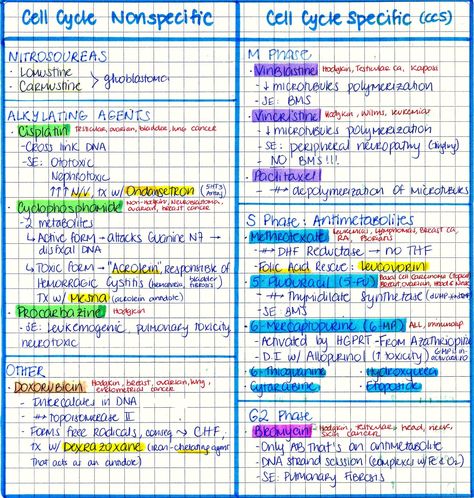 Cell Cycle Nonspecific
NITROSOUREAS
· Lomustine
· Carmustine > glioblastoma
ALKYLATING AGENTS
· Cisplatin Testicular, ovarian, bladder, lung cancer
-Cross link DNA
-SE: Ototoxic
Nephrotoxic
↑↑↑ N/V, TX w/ Ondansetron (5HT3
· Cyclophosphamide Non-Hodgkin, Neuroblastoma,
ovarian, breast cancer
-2 metabolites
↳ Active form → attacks Guanine N7 →
↳ Toxic form → "Acrolein", responsible of
Hemorragic Cystitis (hematuria, bladder
fibrosis)
TX w/ Mesna (acrolein annidote)
· Procarbazine Hodgkin
-SE: Leukemogenic, pulmonary toxicity,
neurotoxic
OTHER
· Doxorubicin Hodgkins, breast, ovarian, lung,
endometrial cancer
-Intercalates in DNA
-⊣⊢ Topoisomerase II
-Forms free radicals, causing → CHF
TX w/ Dexrazoxane (iron-chelating agent
that acts as an annidote)
Cell Cycle Specific (CCS)
M Phase
· Vinblastine Hodgkin, Testicular ca, Kaposi
-↓ microtubules polymerization
-SE: BMS
· Vincristine Hodgkin, Wilms, leukemia
-↓ microtubules polymerization
-SE: peripheral neuropathy
NO BMS!!!
· Paclitaxel
-⊣⊢ depolymerization of microtubules
S Phase: Antimetabolites
· Methrotexate Leukemias, Lymphomas, Breast ca,
RA, Psoriasis
-⊣⊢ DHF Reductase → no THF
-Folic Acid Rescue: Leucovorin
· 5-Fluoruracil (5-FU) Basal cell carcinoma (topical)
Breast, ovarian, Head & Neck
-⊣⊢ Thymidilate Synthetase
-SE BMS
· 6-Mercaptopurine (6-MP) ALL, immunosup
-Activated by HGPRT -From Azathioprine
-D.I w/ Allopurinol (↑ toxicity)
· 6-Thioguanine · Hydroxyurea
· Cytarabine · Etoposide
G2 Phase
· Bleomycin Hodgkin, Testicular, head, neck,
skin cancer
-Only AB that's an antimetabolite
-DNA strand scission (complexes w/ Fe & O2)
-SE: Pulmonary Fibrosis